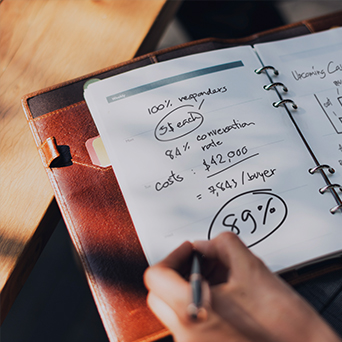 100% responders
5$ each
84% conversation
rate
costs: $42,000
= 784$/buyer
89%
Upcoming Cas